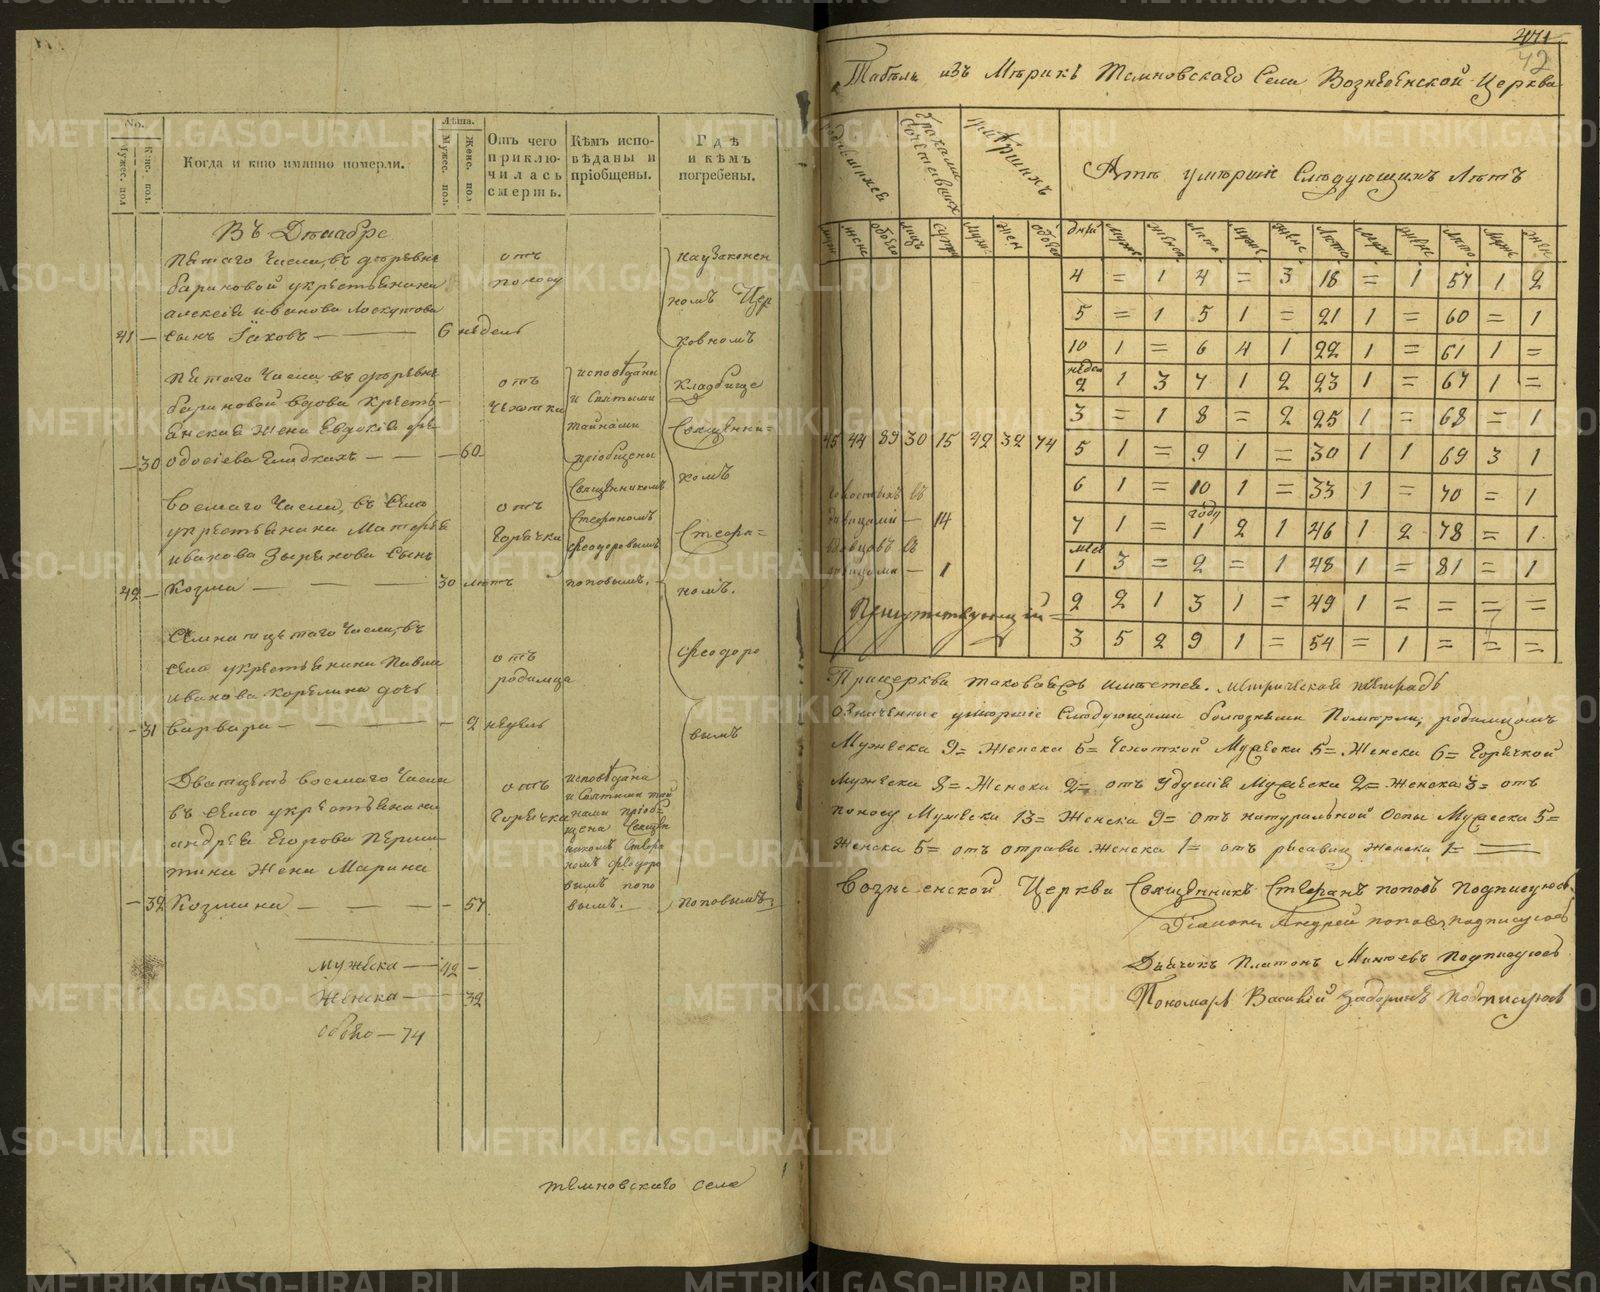 No.
Мужес. пол
Женс. пол.
Когда и кто имянно померли.
Лѣта.
Мужес. пол.
Женс. пол
Отъ чего приключилась смерть.
Кѣмъ исповѣданы и пріобщены.
Гдѣ и кѣмъ погребены.
Въ Декабре
Пятаго Числа, въ деревне
бариновой укрестьянина
алексія иванова Лоскутова
41 — сынъ Іаковъ — 6 недель
отъ поносу
Пятаго Числа въ деревне
бариновой вдова кресть-
янская жена Евдокія фе-
— 30 одосіева Гладкихъ — — — 60
отъ Чехотки
исповѣданы
и Святыми
тайнами
пріобщены
Священникомъ
Стефаномъ
феодоровымъ
поповымъ.
Восмаго Числа, въ Селѣ
укрестьянина Матфея
иванова Зырянова сынъ
42 — Козма — — — 30 летъ
отъ Горячки
Семнатцетаго Числа, въ
Селѣ укрестьянина Павла
иванова Корелина дочь
— 31 варвара — — — 2 недель
отъ родимца
Дватцеть восмаго Числа
въ селѣ укрестьянина
андрея Егорова Перши-
тина Жена Марина
— 32 Козмина — — — — 57
отъ Горячки
исповѣдана
и Святыми тай
нами пріоб-
щена Священ
никомъ Стефа
номъ феодоро
вымъ попо
вымъ.
на узаконен
номъ Цер
ковномъ
кладбище
Священни-
комъ
Стефа-
номъ.
феодоро
вымъ
поповымъ.
мужеска — 42 —
женска — — 32
обоего — 74
темновскаго села
471
42
Табель изъ Метрикъ Темновскаго Села Вознесенской Церкви
Родившихся
Браками Сочетавшихся
Умершихъ
Лѣтъ умершіе Следующихъ Летъ
муж женс обоего лицъ супр муж. жен обоего дней Мужс женск лета мужс женс Лета муж женс Лета мужс жен
4 = 1 4 = 3 18 = 1 57 1 2
5 = 1 5 1 = 21 1 = 60 = 1
10 1 = 6 4 1 22 1 = 61 1 =
недел
2 1 3 7 1 2 23 1 = 67 1 =
3 = 1 8 = 2 25 1 = 68 = 1
45 44 89 30 15 42 32 74 5 1 = 9 1 = 30 1 1 69 3 1
6 1 = 10 1 = 33 1 = 70 = 1
Холостыхъ съ
девицами — 14
7 1 = году 1 2 1 46 1 2 78 = 1
вдовцовъ съ
девицами — 1
мес 1 3 = 2 = 1 48 1 = 81 = 1
2 2 1 3 1 = 49 1 = = = =
3 5 2 9 1 = 54 = 1 = = =
Прицеркви таковаясъ имеетсея. метрической тетрадь
Означенные умершіе Следующими болезнями Померли; родимцомъ
Мужеска 9= Женска 6= Чехоткой Мужеска 5= Женска 6= Горячкой
Мужеска 8= Женска 2= отъ удушія Мужеска 2= Женска 3= отъ
поносу Мужеска 13= Женска 9= отъ натуральной Оспы Мужеска 5=
Женска 5= отъ отравы женска 1= отъ женска 1=
Вознесенской Церкви Священникъ Стефанъ поповъ подписуюсь
Діаконъ Андрей поповъ подписуюсь
Дьячокъ Платонъ подписуюсь
Пономарь Василій Задоринъ подписуюсь
METRIKI.GASO-URAL.RU